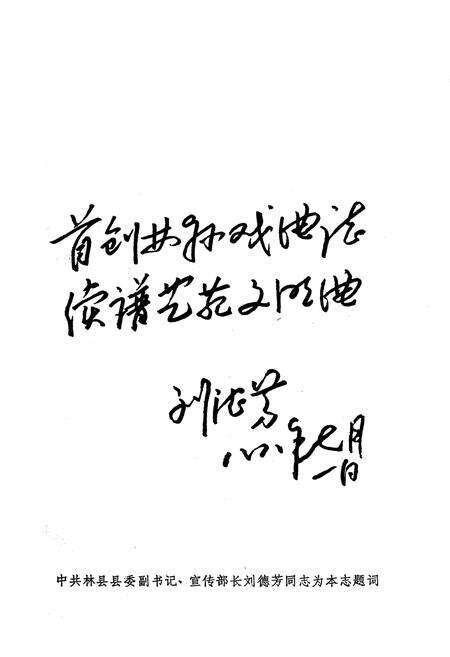 首创林县戏曲志
续谱艺苑文明曲
刘德芳
八八年七月
一日
中共林县县委副书记、宣传部长刘德芳同志为本志题词